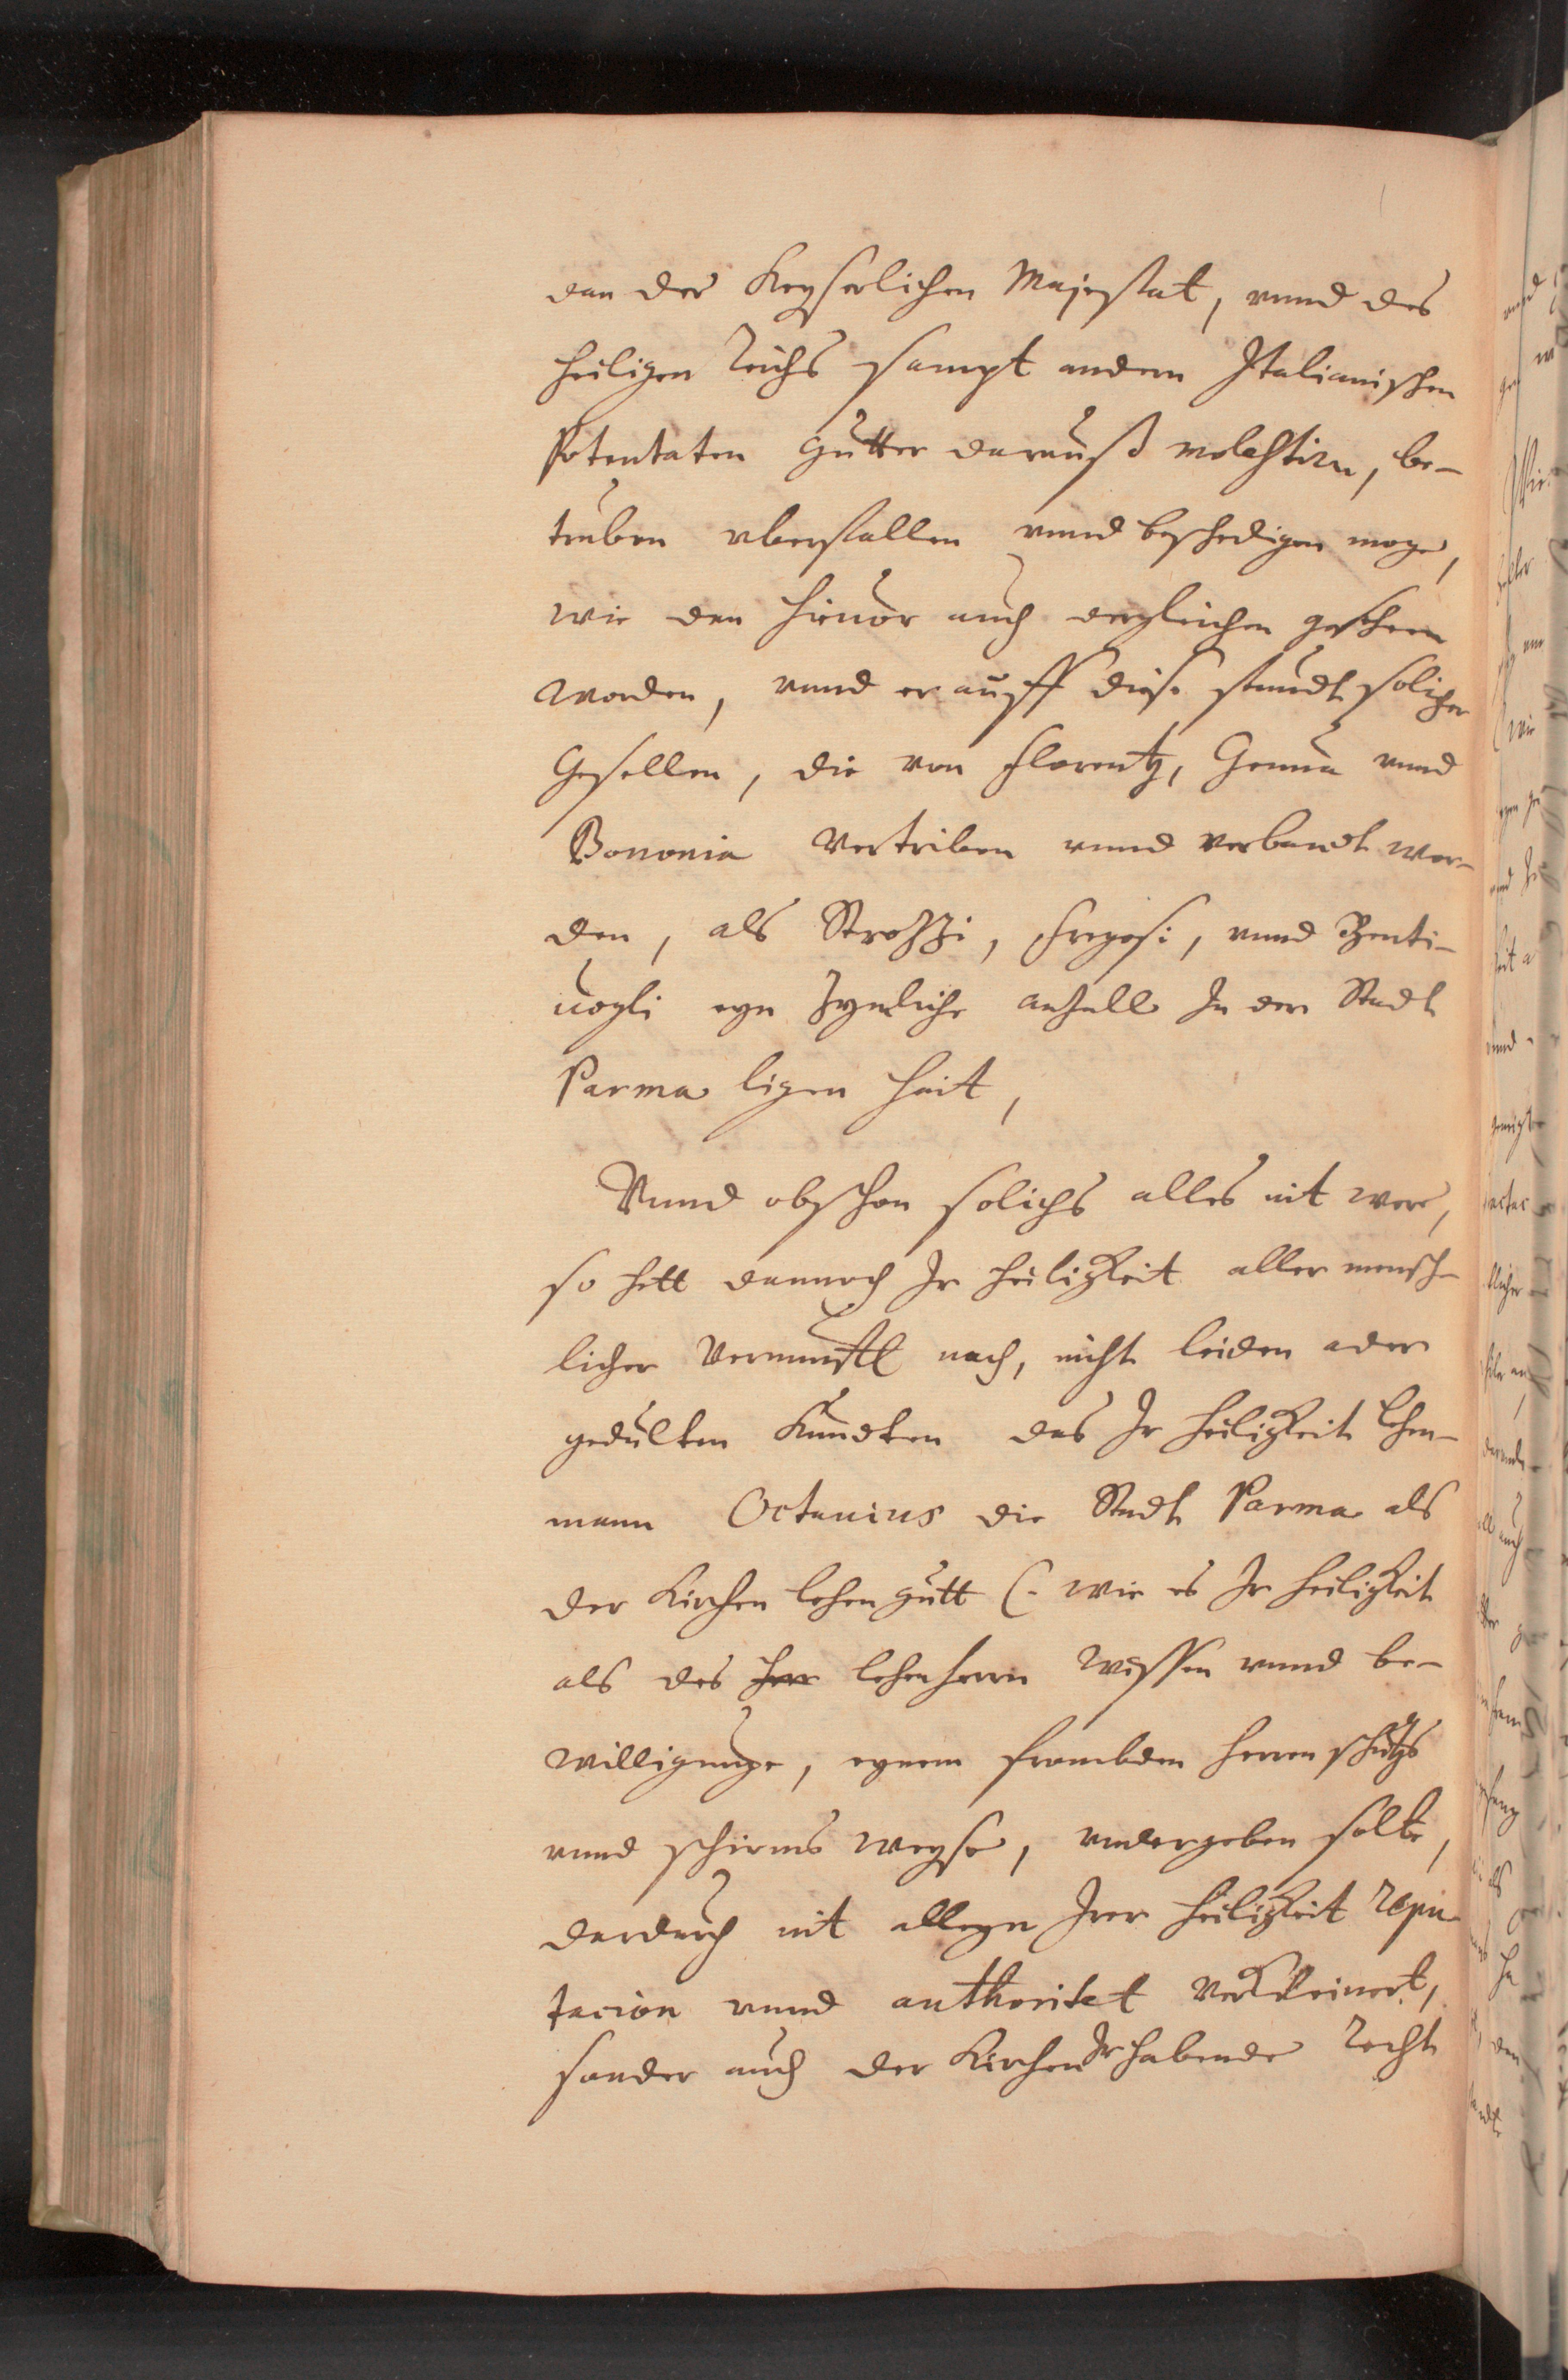 dan der Keyserlichen Majestat, vnnd des
heiligen Reichs sampt andern Italianischen
Potentaten gutter darauß molestirn, be-
truben vberfallen vnnd beschedigen moge,
wie dan hieuor auch dergleichen geschein
worden, vnnd er auff diese stundt solicher
Gesellen, die von Florentz, Genua vnnd
Bononia vertriben vnnd verbandt wor-
den, als Strozzi, Fregosi, vnnd Benti-
uogli eyn zymliche anzall In der Stadt
Parma ligen hait,
Vnnd obschon solichs alles nit were,
so hett dannoch Ir heiligkeit aller mensch-
licher Vernunfft nach, nicht leiden oder
gedulten kundten das Ir heiligkeit Lehen-
mann Octauius die Stadt Parma als
der Kirchen lehen gutt (. wie es Ir heiligkeit
als des herr lehenherrn wissen vnnd be-
willigunge, eynem frombden herren schutz
vnnd schirms weyse, vndergeben solte,
dardurch nit alleyn Irer heiligkeit Repu-
tacion vnnd authoritet verkleinert,
sonder auch der Kirchen Ir habende Recht